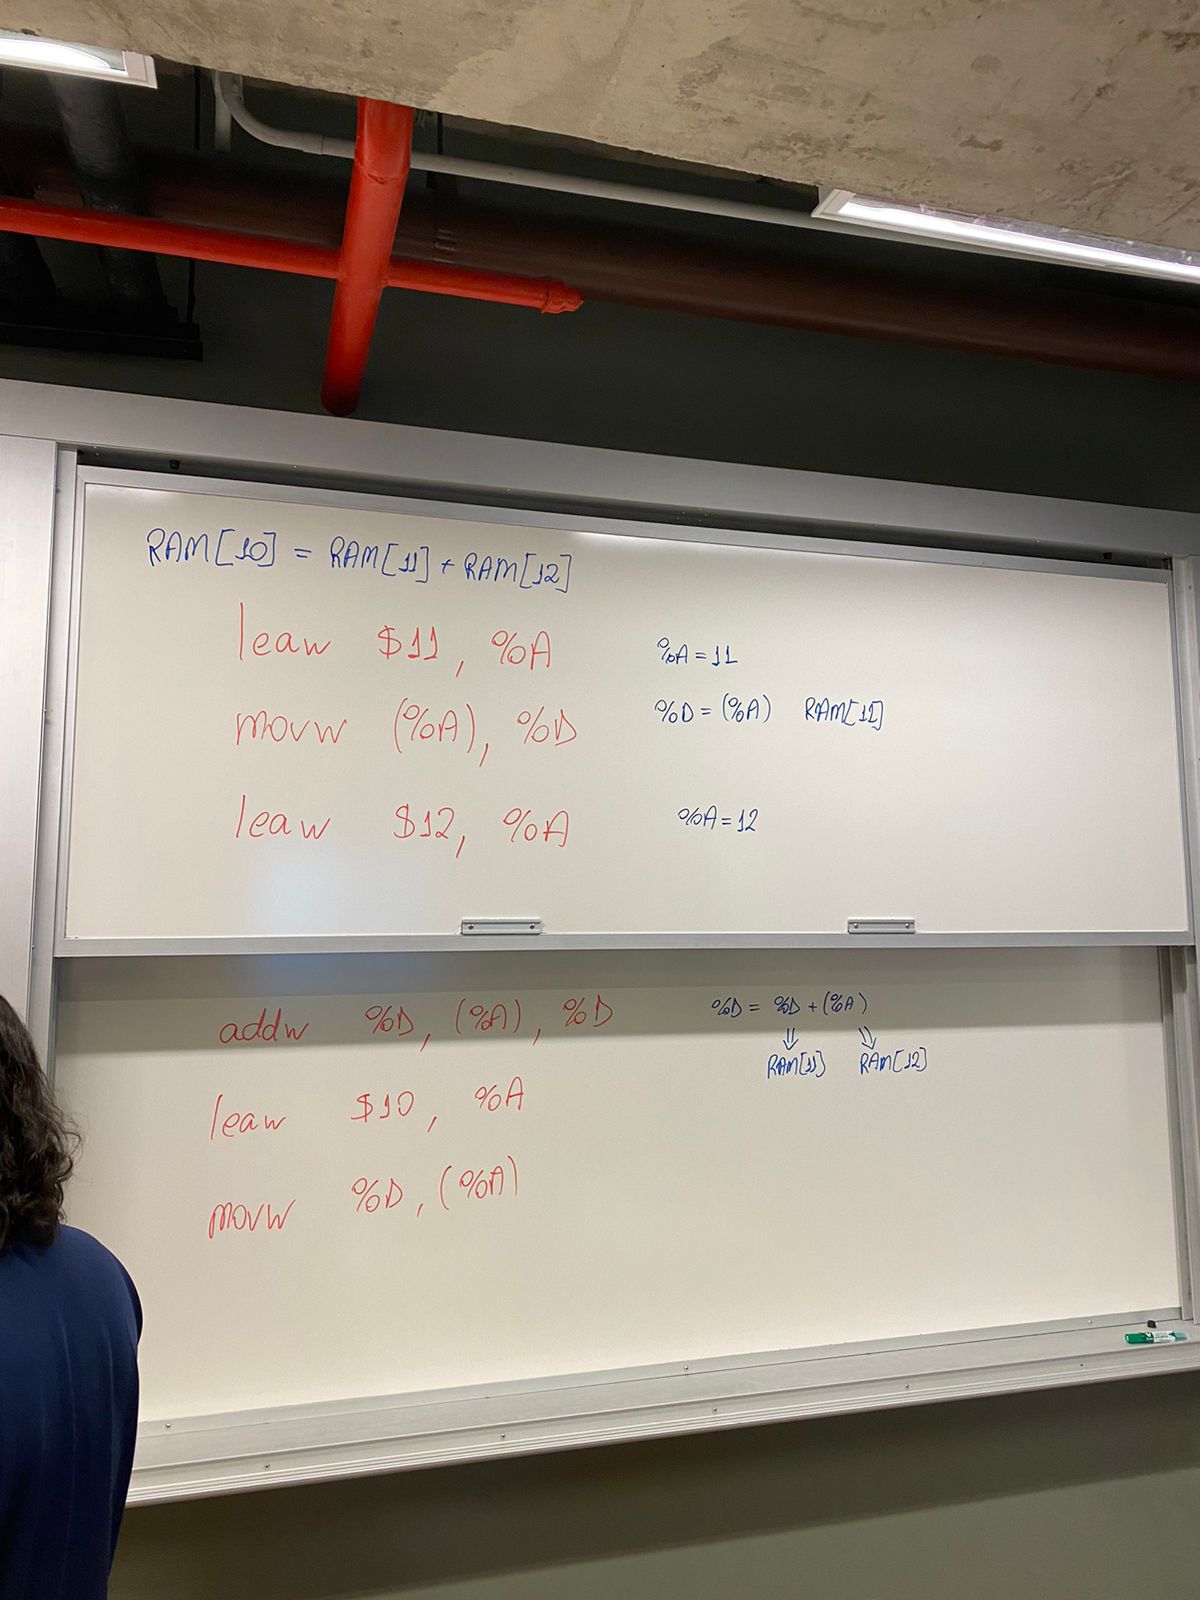 RAM[10] = RAM[11] + RAM[12]
leaw $11, %A %A = 11
movw (%A), %D %D = (%A) RAM[11]
leaw $12, %A %A = 12
addw %D, (%A), %D %D = %D + (%A)
⇓ ⇘
RAM[11] RAM[12]
leaw $10, %A
movw %D, (%A)